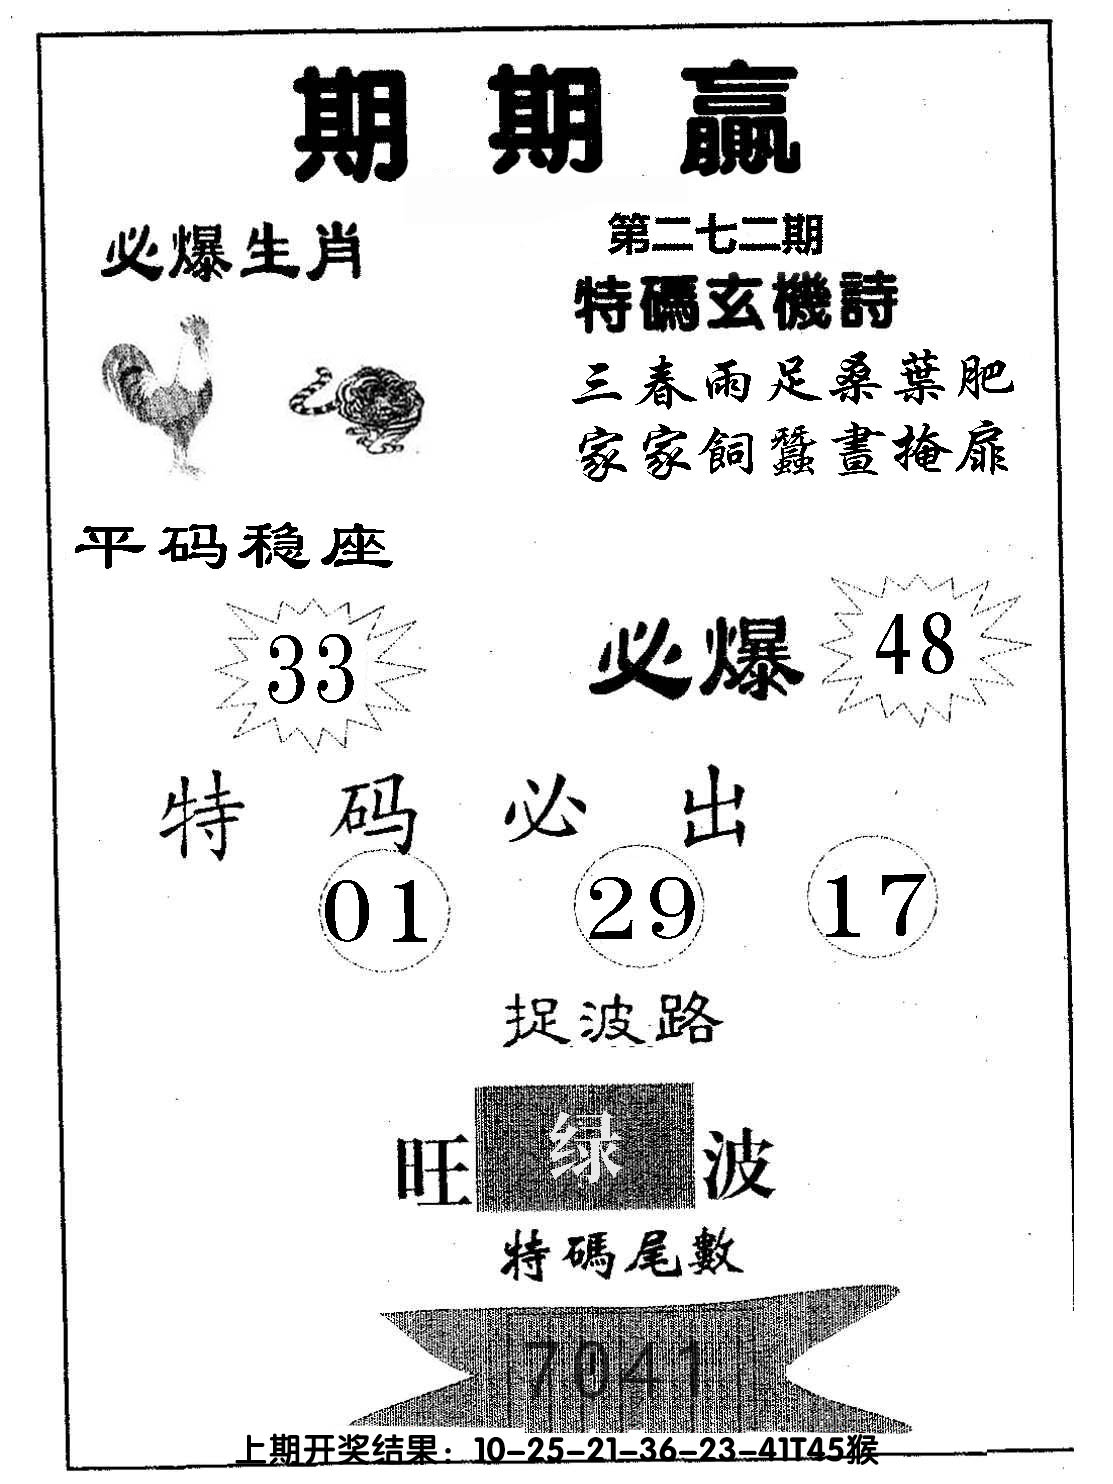 期期赢
必爆生肖
第二七二期
特碼玄機詩
三春雨足桑葉肥
家家飼蠶晝掩扉
平码稳座
33
必爆
48
特码必出
01 29 17
捉波路
旺绿波
特碼尾數
7041
上期开奖结果：10-25-21-36-23-41T45猴